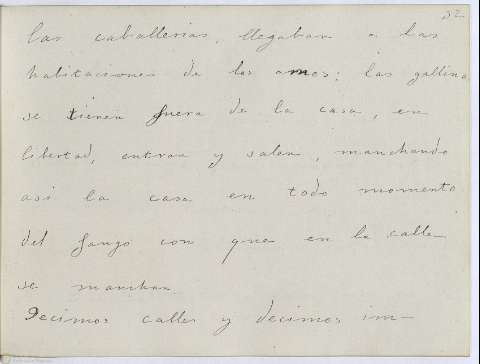 32.
las caballerias, llegaban a las
habitaciones de los amos; las gallina
se tienen fuera de la casa, en
libertad, entran y salen, manchando
asi la casa en todo momento
del fango con que en la calle
se manchan
Decimos calles y decimos im-